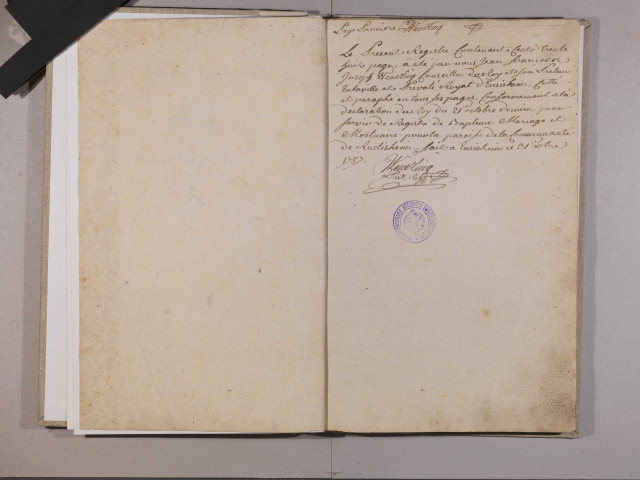 Page Premiere Wenrling
Le Present Registre Contenant Cent trente
huit pages, à été par nous Jean francois
Joseph Conseiller du Roy et son Preteur
Prevôt Royal d'Ensisheim, Cotté
et paraphé en tous ses pages, Conformement a la
declaration du Roy du 21 octobre dernier, pour
servir de Registre de Bapteme, Mariage et
Mortuaire pour la paroisse de la Communauté
de Rudisheim, fait a Ensisheim le 31 xbre
1787